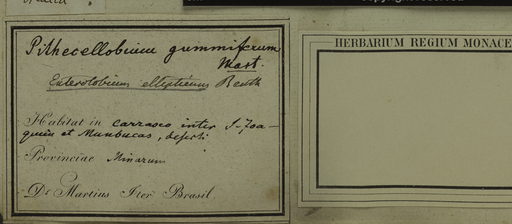 Pithecellobium gummiferum
Mart.
Enterolobium ellipticum Benth
Habitat in carrasco inter S. Joa-
quin et Munbucas, deserti
Provinciae Minarum
Dr Martius Iter Brasil.
HERBARIUM REGIUM MONACE